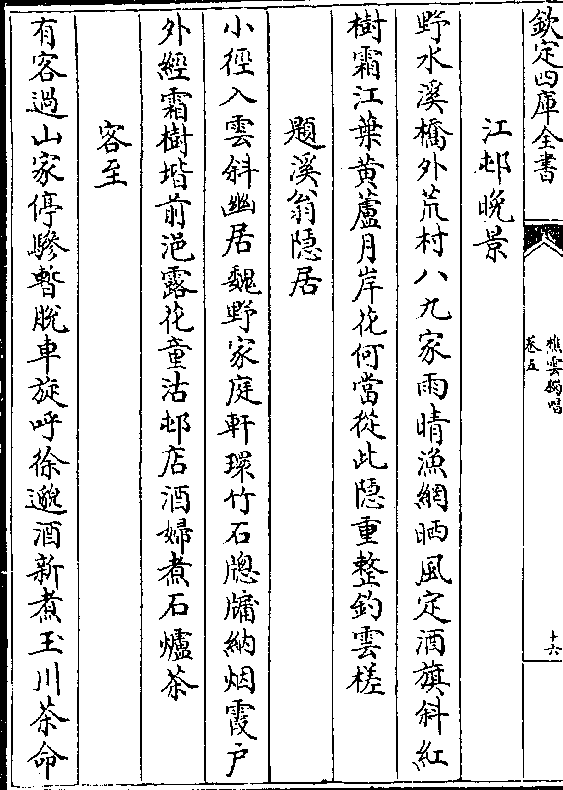 欽定四庫全書
樵雲獨唱
卷五
十六
江邨晚景
野水溪橋外荒村八九家雨晴漁網晒風定酒旗斜紅
樹霜江葉黄蘆月岸花何當從此隠重整釣雲槎
題溪翁隠居
小徑入雲斜幽居魏野家庭軒環竹石牕牖納烟霞户
外經霜樹堦前浥露花童沽邨店酒婦煮石爐茶
客至
有客過山家停驂暫脱車旋呼徐邈酒新煮玉川茶命